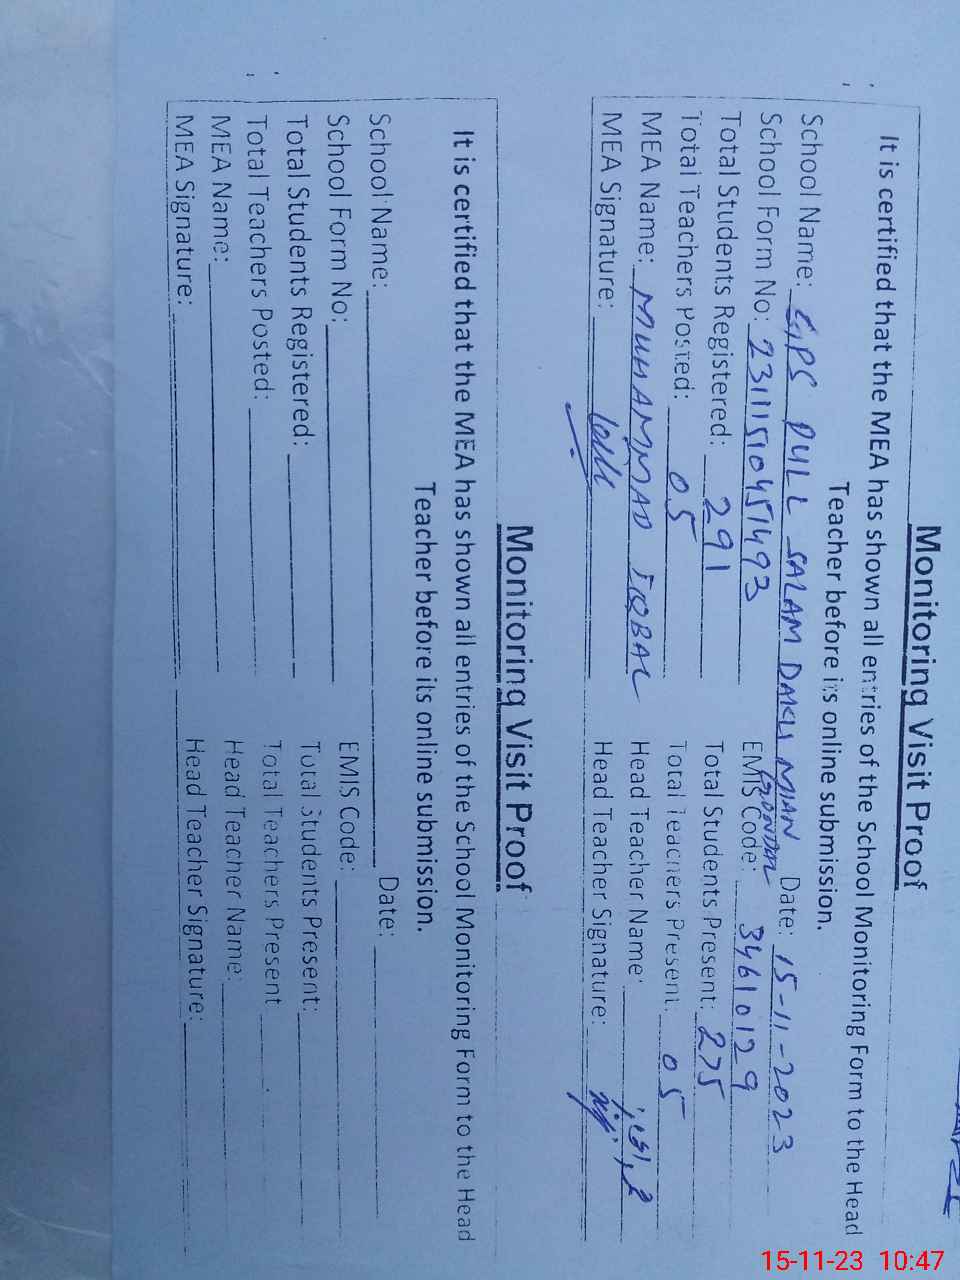 Monitoring Visit Proof
It is certified that the MEA has shown all entries of the School Monitoring Form to the Head
Teacher before its online submission.
School Name: GPS PULL SALAM DAKU MIAN Date: 15-11-2023
School Form No: 23111510451493 EMIS Code: 34610129
Total Students Registered: 291 Total Students Present: 275
Total Teachers Posted: 05 Total Teachers Present: 05
MEA Name: MUHAMMAD IQBAL Head Teacher Name:
MEA Signature: Head Teacher Signature:
Monitoring Visit Proof
It is certified that the MEA has shown all entries of the School Monitoring Form to the Head
Teacher before its online submission.
School Name: Date:
School Form No: EMIS Code:
Total Students Registered: Total Students Present:
Total Teachers Posted: Total Teachers Present
MEA Name: Head Teacher Name:
MEA Signature: Head Teacher Signature:
15-11-23 10:47